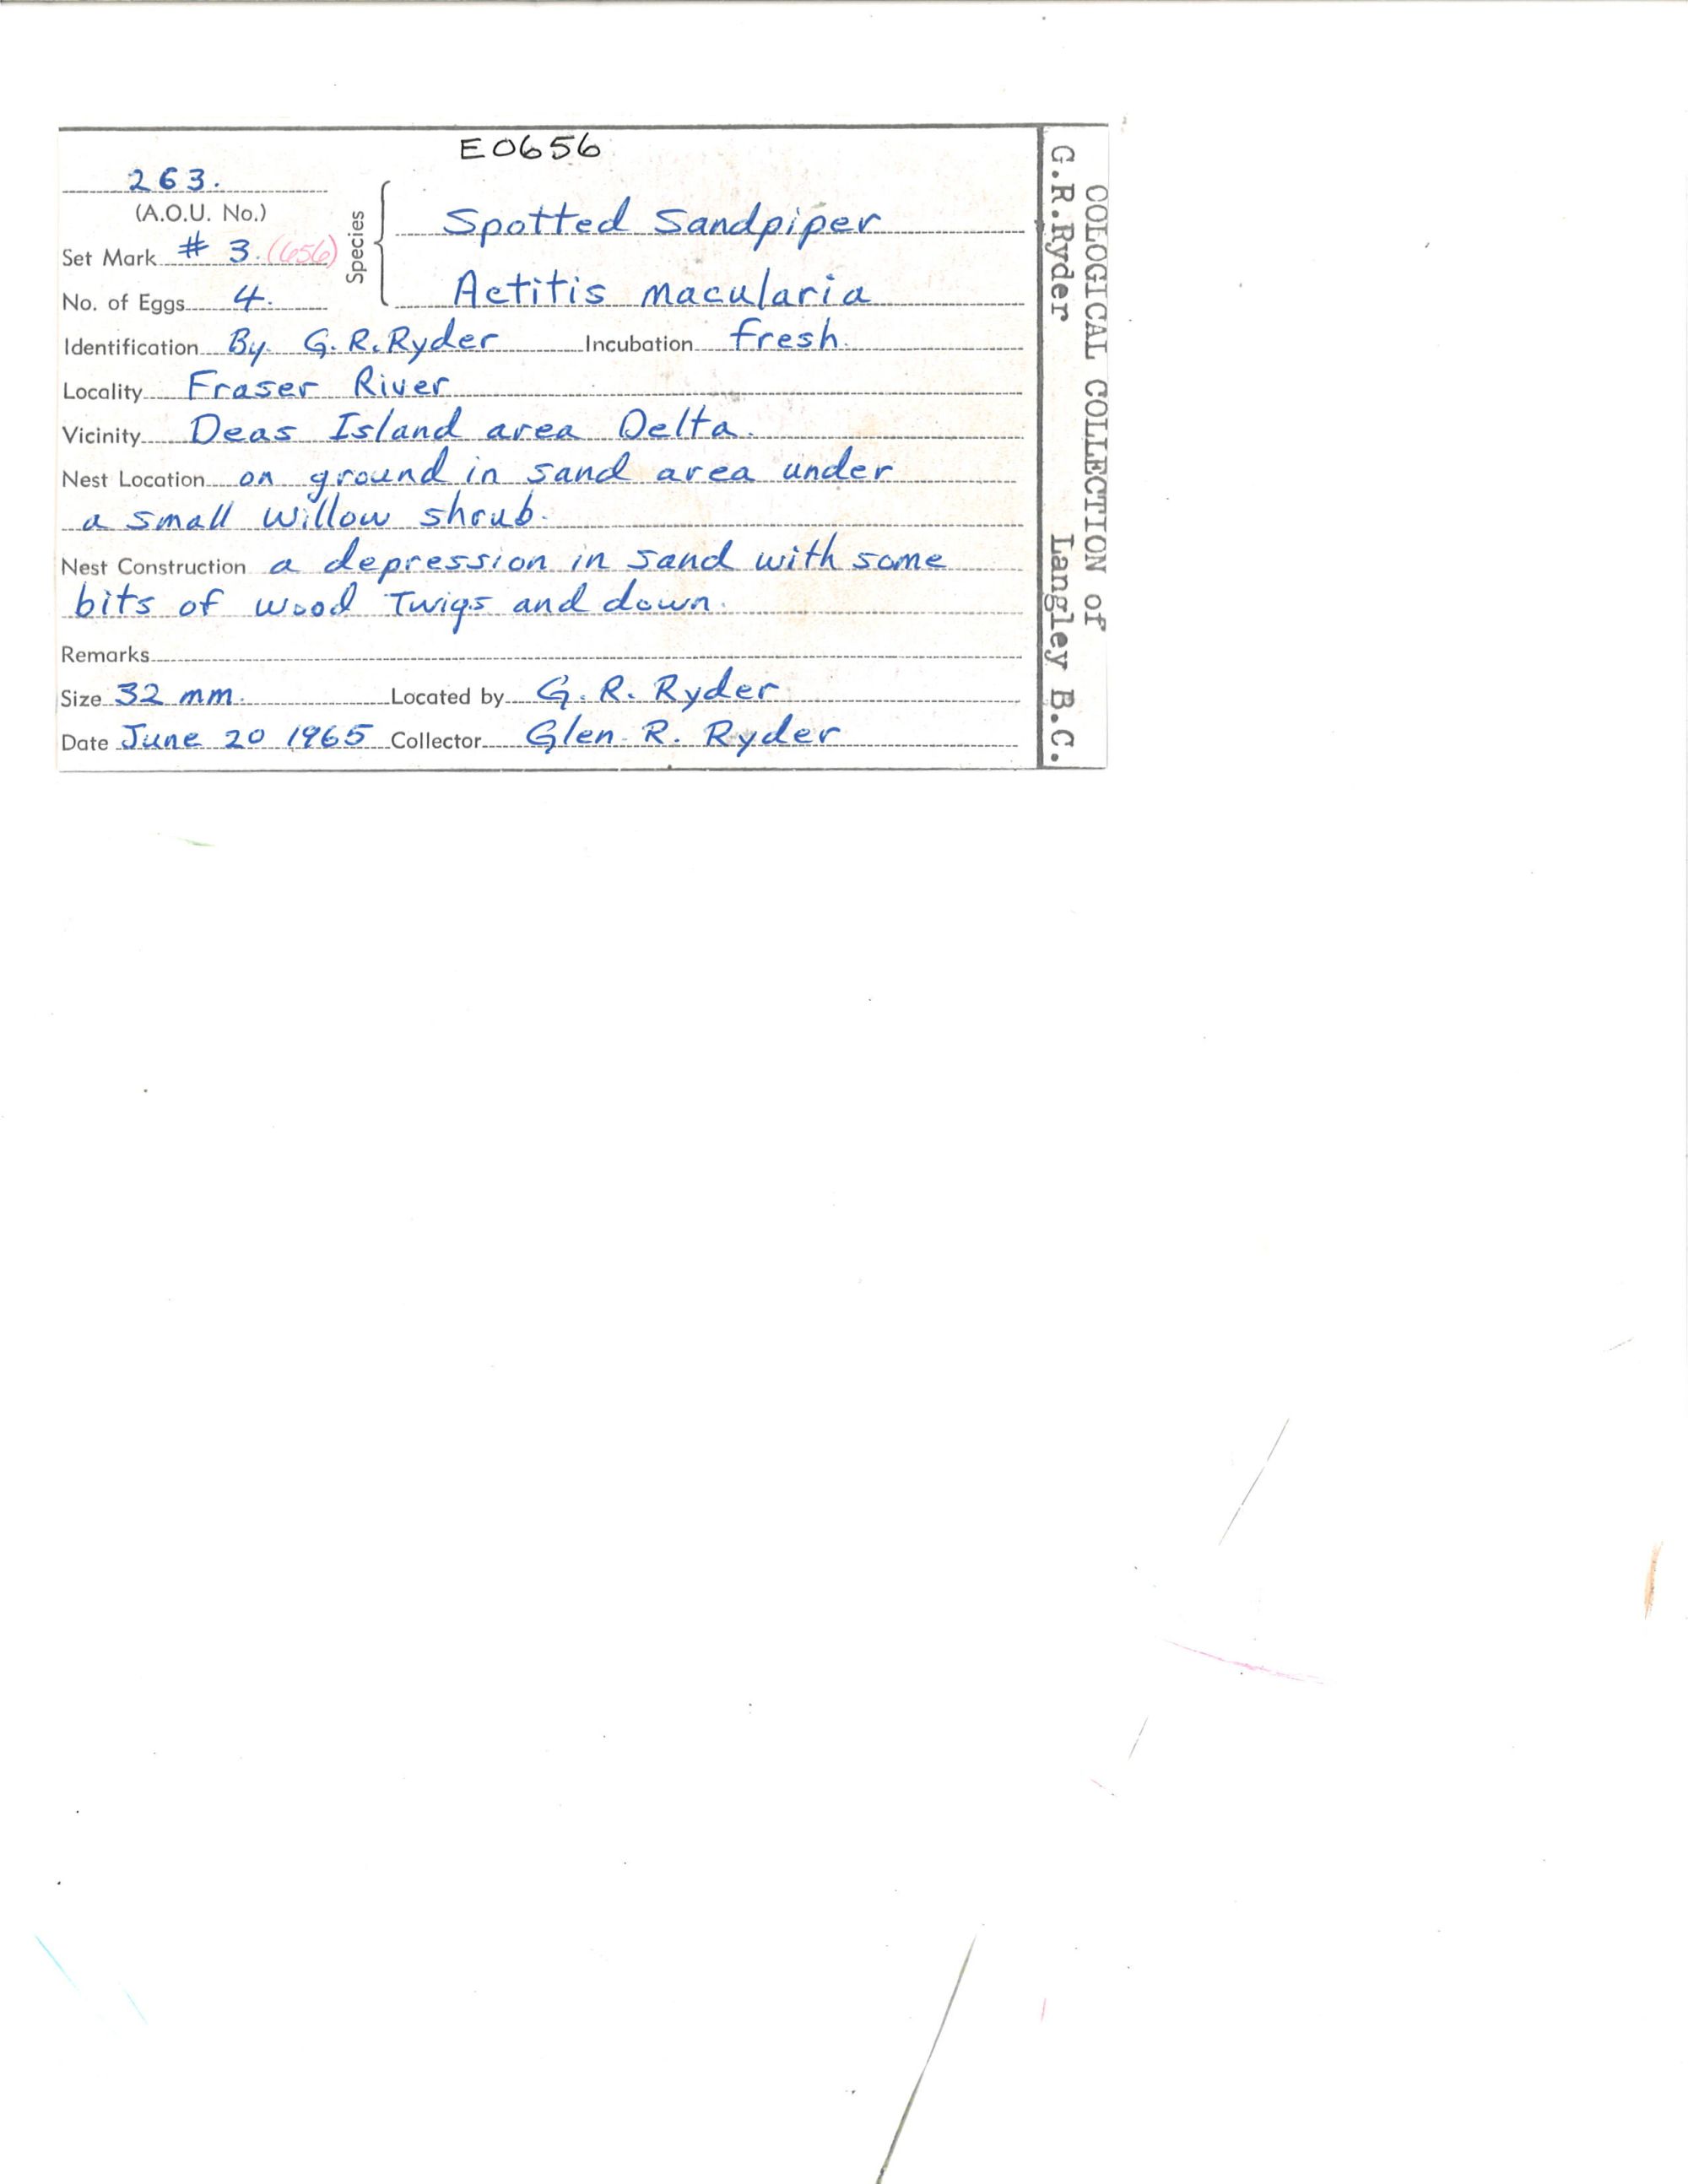 E0656
263.
(A.O.U. No.)
Set Mark # 3. (656)
No. of Eggs 4.
Species
Spotted Sandpiper
Actitis macularia
Identification By G. R. Ryder Incubation fresh.
Locality Fraser River
Vicinity Deas Island area Delta.
Nest Location on ground in sand area under
a small willow shrub.
Nest Construction a depression in sand with some
bits of wood Twigs and down.
Remarks
Size 32 mm. Located by G. R. Ryder
Date June 20 1965 Collector Glen R. Ryder
OOLOGICAL COLLECTION of
G.R.Ryder Langley B.C.